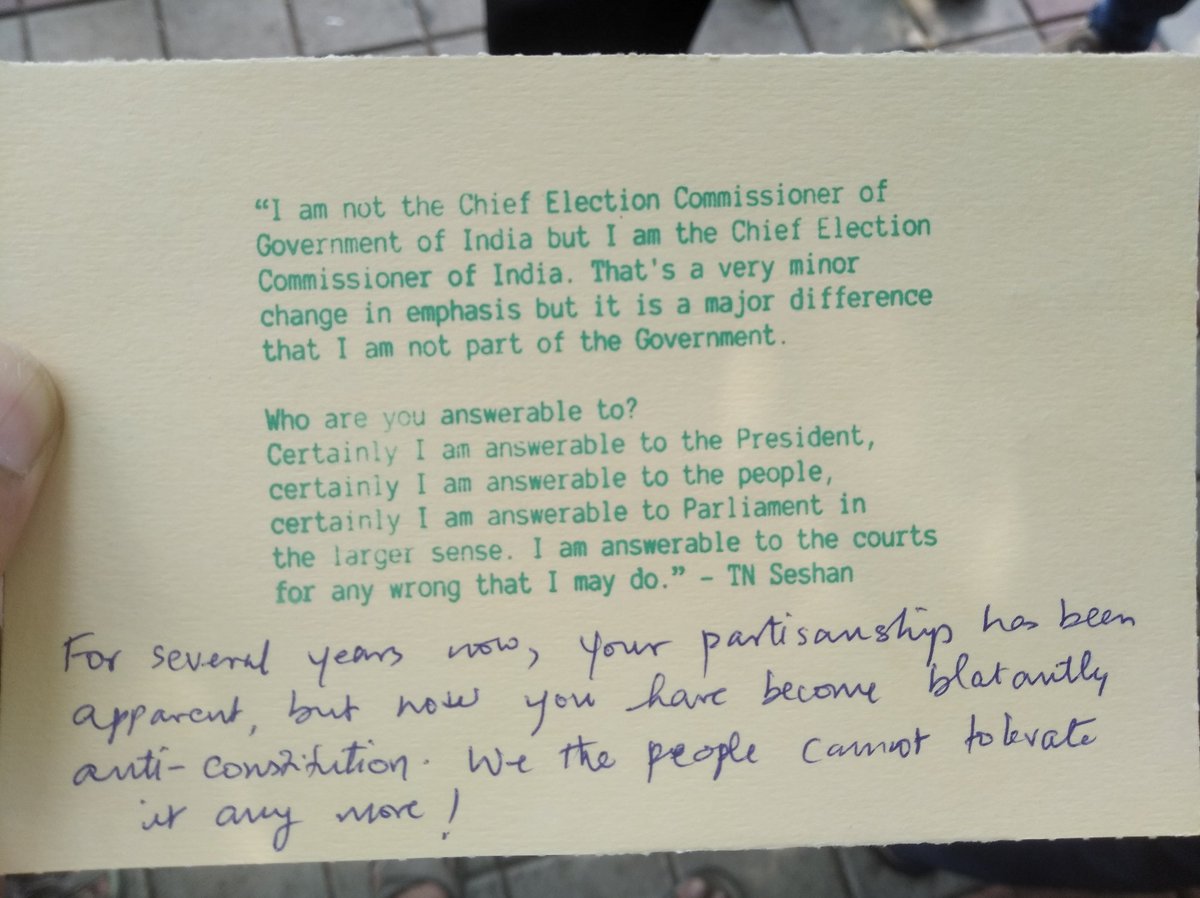 “I am not the Chief Election Commissioner of
Government of India but I am the Chief Election
Commissioner of India. That's a very minor
change in emphasis but it is a major difference
that I am not part of the Government.
Who are you answerable to?
Certainly I am answerable to the President,
certainly I am answerable to the people,
certainly I am answerable to Parliament in
the larger sense. I am answerable to the courts
for any wrong that I may do.” – TN Seshan
For several years now, your partisanship has been
apparent, but now you have become blatantly
anti-constitution. We the people cannot tolerate
it any more!